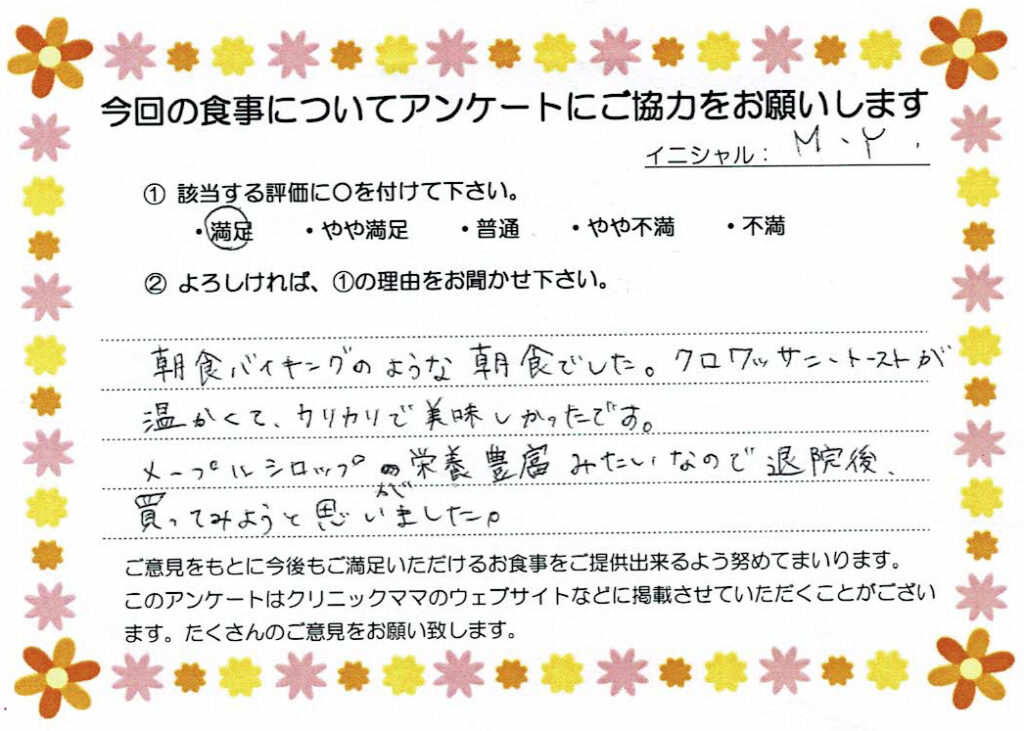 今回の食事についてアンケートにご協力をお願いします
イニシャル： M、Y．
① 該当する評価に〇を付けて下さい。
・満足 ・やや満足 ・普通 ・やや不満 ・不満
② よろしければ、①の理由をお聞かせ下さい。
朝食バイキングのような朝食でした。クロワッサン、トーストが
温かくて、カリカリで美味しかったです。
メープルシロップが栄養豊富みたいなので退院後、
買ってみようと思いました。
ご意見をもとに今後もご満足いただけるお食事をご提供出来るよう努めてまいります。
このアンケートはクリニックママのウェブサイトなどに掲載させていただくことがござい
ます。たくさんのご意見をお願い致します。